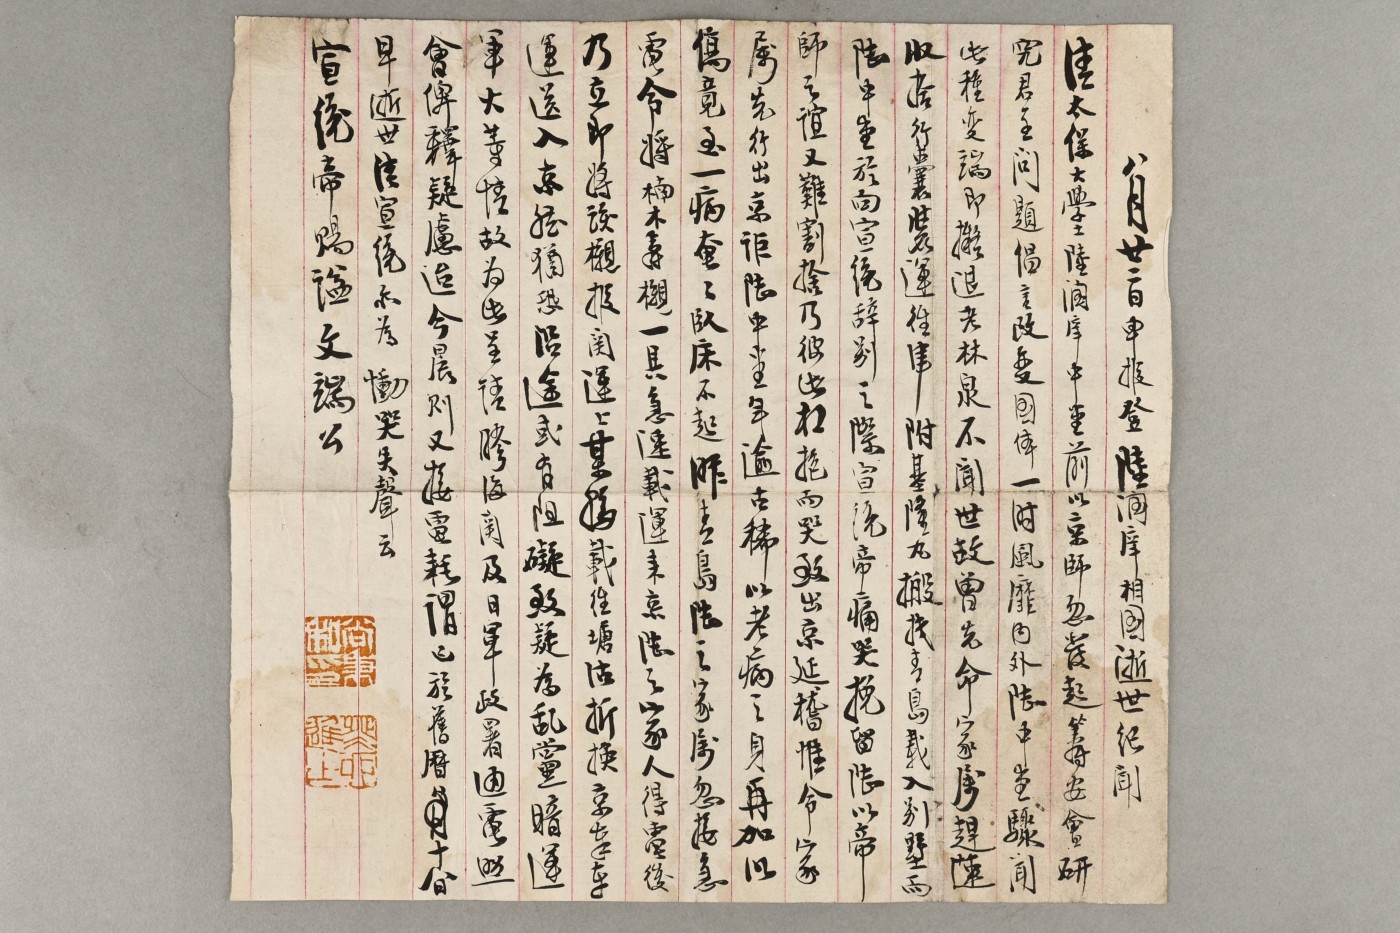 八月廿二日申报登陸潤庠相國逝世紀聞
清太保大學士陸潤庠中堂前以京師忽發起籌安會研
究君主问题倡言改变国体一时風靡内外陸中堂驟聞
此种变端即擬退老林泉不聞世故曾先命家属趕速
收拾行囊装運往車附基隆丸搬找青島載入别墅而
陸中堂於向宣統辞别之際宣統帝痛哭挽留陸以帝
師之誼又難割捨乃彼此相抱而哭致出京延稽惟令家
属先行出京詎陸中堂年逾古稀以老病之身再加以
傷竟至一病奄之臥床不起昨青島陸之家属忽接急
電令将楠木壽櫬一具急速載運来京陸之家人得電後
乃立即将該櫬报関運上某船載往塘沽折换京奉車
運送入京然猶恐沿途或有阻礙致疑為乱靈暗運
軍火等情故为此呈請膠海関及日軍政署通電照
會俾釋疑慮迨今晨则又接電耗謂已於舊曆月十日
早逝世清宣統亦為慟哭失聲云
宣統帝賜諡文端公